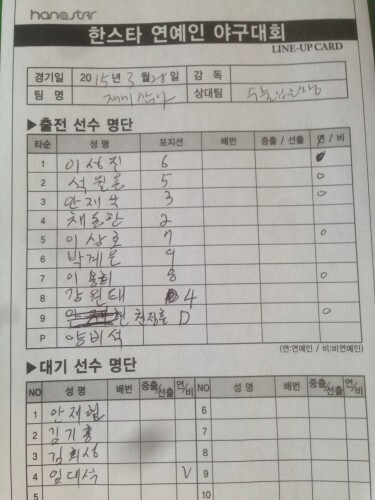 hanestar
한스타 연예인 야구대회
LINE-UP CARD
경기일 2015년 3월 28일 감 독
팀 명 재미삼아 상대팀
▶출전 선수 명단
타순 성 명 포지션 배번 중출 / 선출 연 / 비
1 이성진 6
2 5 o
3 안재욱 3 o
4 2
5 이상호 7 o
6 박계온 9
7 이용희 8 o
8 강원태 4
9 D o
P 양비석
(연:연예인 / 비:비연예인)
▶대기 선수 명단
NO 성 명 배번 중출/선출 연/비 NO 성 명 배번 중출/선출 연/비
1 안재협 6
2 김기홍 7
3 김희성 8
4 임대석 V 9
10